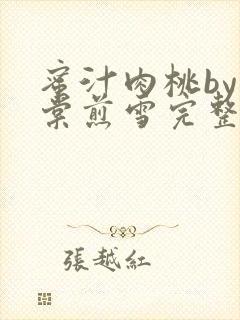 蜜汁肉桃by
棠煎雪完整
張越紅